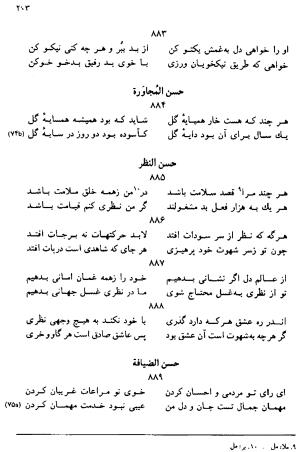 ۲۰۳
۸۸۳
او را خواهی دل به‌غمش یکتو کن از بد ببُر و هر چه کنی نیکو کن
خواهی که طریق نیکخویان ورزی با خوی بد رفیق بدخو خوکن
حسن المُجاوَرة
۸۸۴
هر چند که هست خار همپایهٔ گل شاید که بود همیشه همسایهٔ گل
یک سال برای آن بود دایهٔ گل کآسوده بود دو روز در سایهٔ گل (74b)
حسن النظر
۸۸۵
هر چند مرا۹ قصد سلامت باشد در۱۰من زهمه خلق ملامت باشد
هر یک به هزار فعل بد مشغولند گر من نظری کنم قیامت باشد
۸۸۶
هرگه که نظر از سر سودات افتد لابد حرکتهات نه برجات افتد
چون تو زسر شهوت خود پرهیزی هر جای که شاهدی است دریات افتد
۸۸۷
از عالم دل اگر نشانی بدهیم خود را زهمه غمان امانی بدهیم
تو از نظری به‌غسل محتاج شوی ما در نظری غسل جهانی بدهیم
۸۸۸
اندر ره عشق هرکه دارد گذری با خود نکند به هیچ وجهی نظری
گر هرچه به‌شهوت است آن عشق بود پس عاشق صادق است هر گاو و خری
حسن الضیافة
۸۸۹
ای رای تو مردمی و احسان کردن خوی تو مراعات غریبان کردن
مهمان جمال تست جان و دل من عیبی نبود خدمت مهمان کردن (75a)
۹. ملا: مل ۱۰. بر: مل